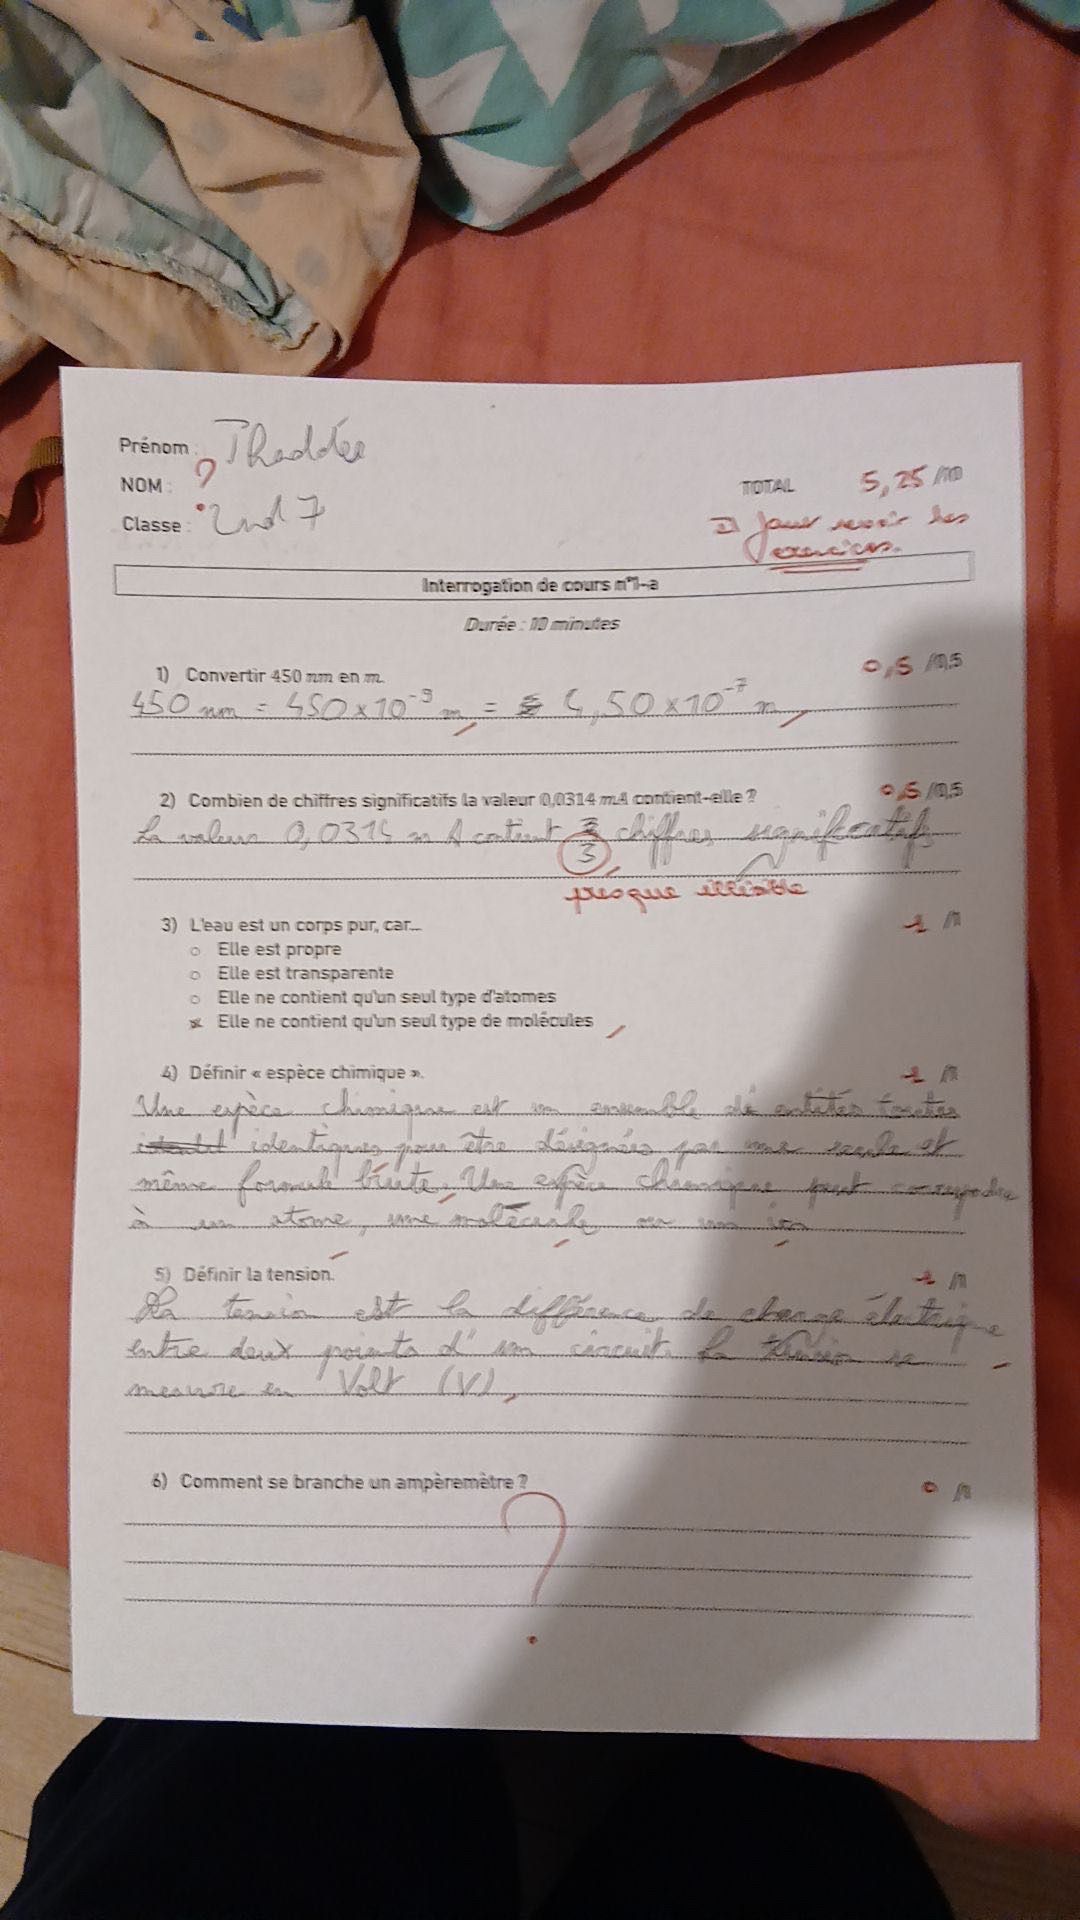 Prénom : Thaddée
NOM : ?
Classe : 2nd 7
TOTAL 5,25 /10
Il faut revoir les
exercices.
Interrogation de cours n°1-a
Durée : 10 minutes
1) Convertir 450 nm en m.
0,5 /0,5
450 nm = 450 x 10⁻⁹ m = 4,50 x 10⁻⁷ m
2) Combien de chiffres significatifs la valeur 0,0314 mA contient-elle ?
0,5 /0,5
La valeur 0,0314 mA contient 3 chiffres significatifs
3
presque illisible
3) L'eau est un corps pur, car...
1 /1
Elle est propre
Elle est transparente
Elle ne contient qu'un seul type d'atomes
Elle ne contient qu'un seul type de molécules
4) Définir « espèce chimique ».
1 /1
Une espèce chimique est un ensemble de entités toutes
identiques pour être désignées par une seule et
même formule brute. Une espèce chimique peut correspondre
à un atome, une molécule ou un ion
5) Définir la tension.
1 /1
La tension est la différence de charge électrique
entre deux points d'un circuit. La tension se
mesure en Volt (V).
6) Comment se branche un ampèremètre ?
0 /1
?